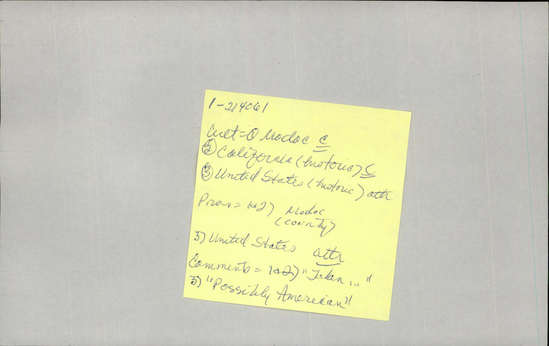 1-214061
Cult = ① Modoc C
② California (historic) C
③ United States (historic) attr
Prov = 1+2) Modoc
(county)
3) United States attr
Comments = 1+2) "Taken ... "
3) "Possibly American"